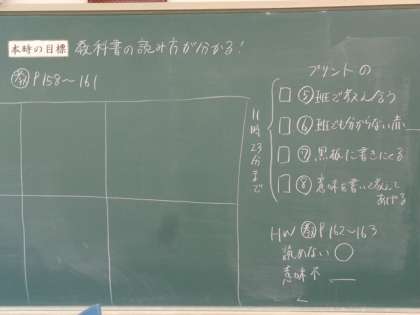 本時の目標 教科書の読み方が分かる!
教 P158〜161
11時23分まで
プリントの
□ ⑤班で考えよう
□ ⑥班でも分からない赤
□ ⑦黒板に書きにくる
□ ⑧意味を書いて教えて
あげる
HW 教 P162〜163
読めない ○
意味不